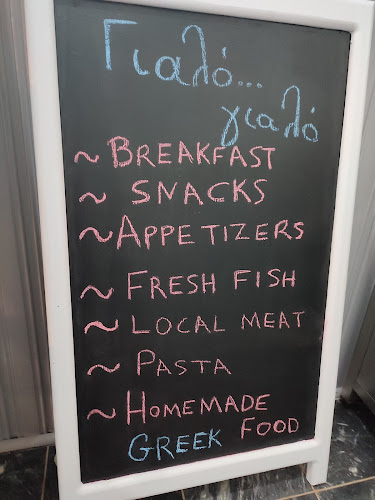 Γιαλό...
γιαλό
~ BREAKFAST
~ SNACKS
~ APPETIZERS
~ FRESH FISH
~ LOCAL MEAT
~ PASTA
~ HOMEMADE
GREEK FOOD